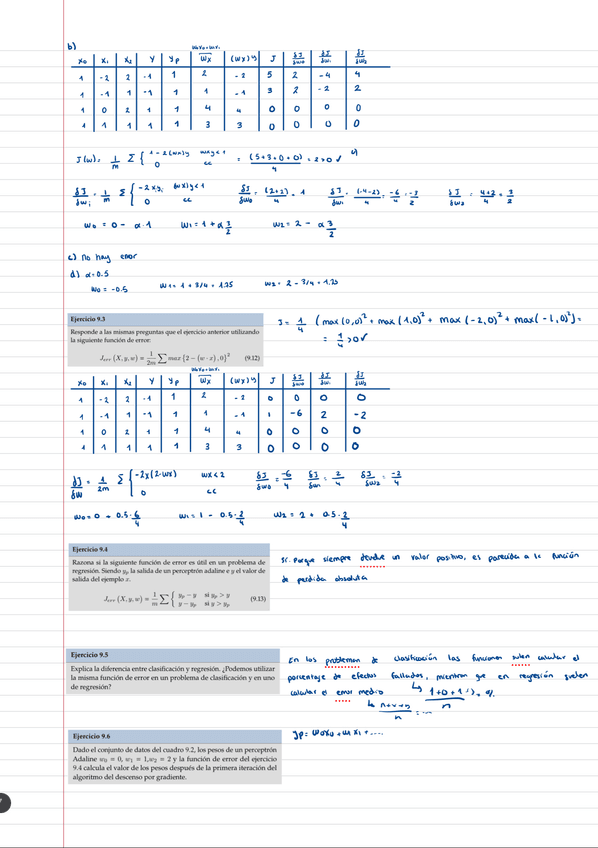 b)
w0x0+w1x1
x0 x1 x2 y yp wx (wx)y J δJ/δw0 δJ/δw1 δJ/δw2
1 -2 2 -1 1 2 -2 5 2 -4 4
1 -1 1 -1 1 1 -1 3 2 -2 2
1 0 2 1 1 4 4 0 0 0 0
1 1 1 1 1 3 3 0 0 0 0
J(w) = 1/m Σ { 1-2(wx)y wxy<1 = (5+3+0+0)/4 = 2>0 ✓
0 cc
δJ/δwi = 1/m Σ { -2xiyi (wx)y<1 δJ/δw0 = (2+2)/4 = 1 δJ/δw1 = (-4-2)/4 = -6/4 = -3/2 δJ/δw2 = 4+2/4 = 3/2
0 cc
w0 = 0 - α·1 w1 = 1 + α 3/2 w2 = 2 - α 3/2
c) No hay error
d) α=0.5
w0 = -0.5 w1 = 1 + 3/4 = 1.75 w2 = 2 - 3/4 = 1.25
Ejercicio 9.3
Responde a las mismas preguntas que el ejercicio anterior utilizando
la siguiente función de error:
Jerr (X, y, w) = 1/2m ∑ max {2 − (w · x) , 0}² (9.12)
J = 1/4 (max(0,0)² + max(1,0)² + max(-2,0)² + max(-1,0)²) =
= 1/4 >0 ✓
w0x0+w1x1
x0 x1 x2 y yp wx (wx)y J δJ/δw0 δJ/δw1 δJ/δw2
1 -2 2 -1 1 2 -2 0 0 0 0
1 -1 1 -1 1 1 -1 1 -6 2 -2
1 0 2 1 1 4 4 0 0 0 0
1 1 1 1 1 3 3 0 0 0 0
δJ/δw = 1/2m Σ { -2x(2-wx) wx<2 δJ/δw0 = -6/4 δJ/δw1 = 2/4 δJ/δw2 = -2/4
0 cc
w0 = 0 + 0.5·6/4 w1 = 1 - 0.5·2/4 w2 = 2 + 0.5·2/4
Ejercicio 9.4
Razona si la siguiente función de error es útil en un problema de
regresión. Siendo yp la salida de un perceptrón adaline e y el valor de
salida del ejemplo x.
Jerr (X, y, w) = 1/m ∑ { yp − y si yp > y
y − yp si y > yp (9.13)
Sí. Porque siempre devuelve un valor positivo, es parecida a la función
de perdida absoluta
Ejercicio 9.5
Explica la diferencia entre clasificación y regresión. ¿Podemos utilizar
la misma función de error en un problema de clasificación y en uno
de regresión?
En los problemas de clasificación las funciones suelen calcular el
porcentaje de efectos fallados, mientras que en regresión suelen
calcular el error medio
Ejercicio 9.6
Dado el conjunto de datos del cuadro 9.2, los pesos de un perceptrón
Adaline w0 = 0, w1 = 1,w2 = 2 y la función de error del ejercicio
9.4 calcula el valor de los pesos después de la primera iteración del
algoritmo del descenso por gradiente.
yp = w0x0 + w1x1 + ....